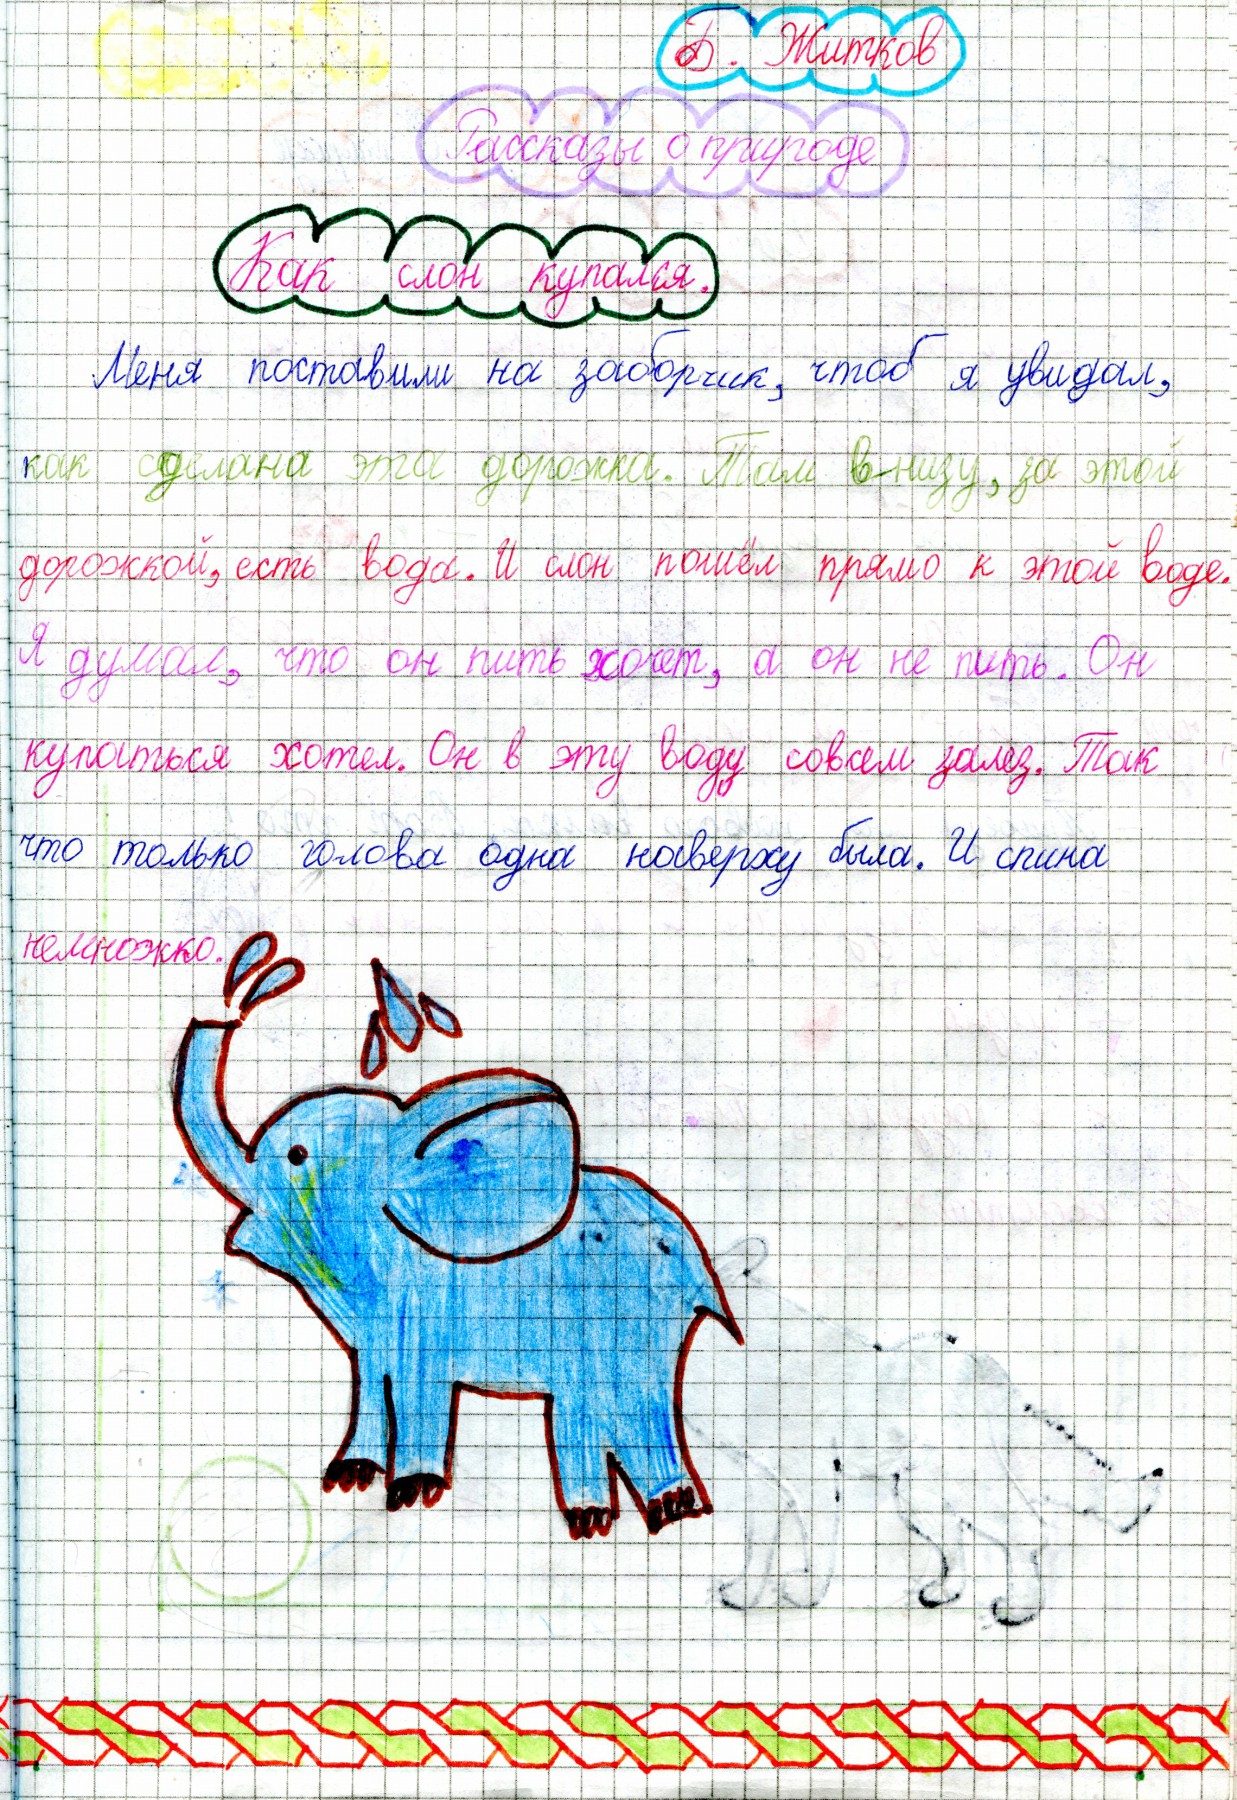 Б. Житков
Рассказы о природе
Как слон купался.
Меня поставили на заборчик, чтоб я увидал,
как сделана эта дорожка. Там в-низу, за этой
дорожкой, есть вода. И слон пошёл прямо к этой воде.
Я думал, что он пить хочет, а он не пить. Он
купаться хотел. Он в эту воду совсем залез. Так
что только голова одна наверху была. И спина
немножко.